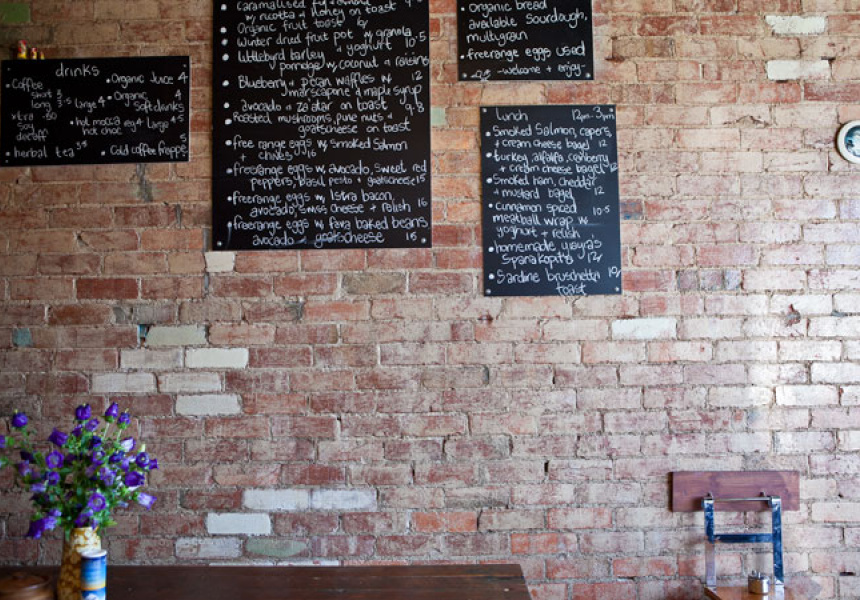 drinks
• Coffee
short 3
long 3.5 Large 4
xtra .80
soy
decaff
• herbal tea 3.5
• Organic Juice 4
• Organic 4
Soft drinks
• hot mocca reg 4 Large 4.5
hot choc
5
• Cold coffee frappe
caramalised fig
w/ ricotta & honey on toast
Organic fruit toast 6
Winter dried fruit pot w granola
& yoghurt 10.5
Littlebyrd barley
porridge w, coconut & raisins
Blueberry & pecan waffles w 12
marscapone & maple syrup
avocado & za'atar on toast 9
Roasted mushrooms, pine nuts & 8
goatscheese on toast
free range eggs w smoked salmon
+ chives 16
freerange eggs w, avocado, sweet red
peppers, basil pesto & goatscheese 15
freerange eggs w Istra bacon,
avocado, swiss cheese + relish 16
freerange eggs w fava baked beans
avocado & goatscheese 15
• organic bread
available sourdough,
multigrain
• freerange eggs used
-welcome + enjoy-
Lunch 12pm-3pm
Smoked Salmon, capers,
+ cream cheese bagel 12
turkey, alfalfa, cranberry
+ cream cheese bagel 12
Smoked ham, cheddar
+ mustard bagel 12
cinnamon spiced 10.5
meatball wrap w
yoghurt + relish
homemade yiayas
Spanakopita 12
Sardine bruschetta
toast